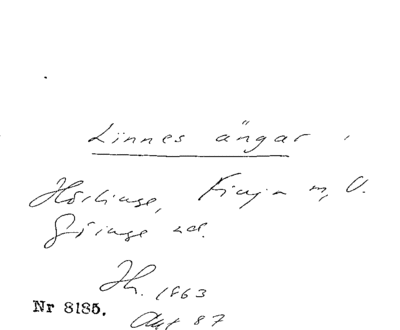 Linnes ängar i
Hörlinge, Finja m, V.
Göinge hd.
Th. 1863
Nr 8185.
Akt 87